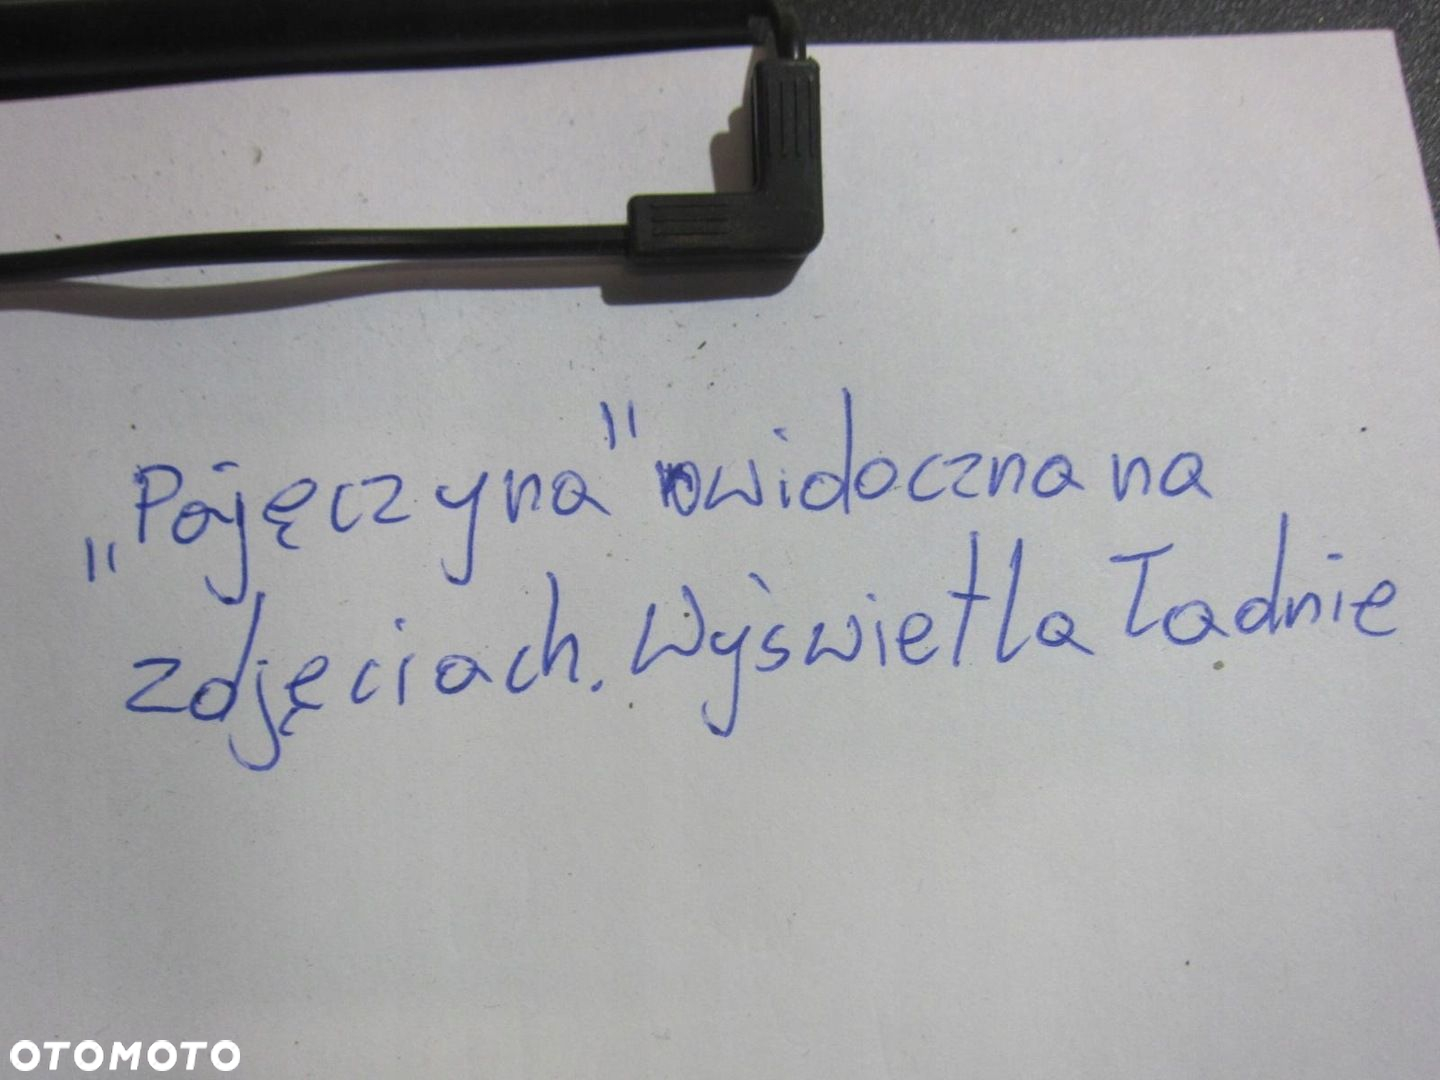 „Pajęczyna" widoczna na
zdjęciach. Wyświetla ładnie
OTOMOTO